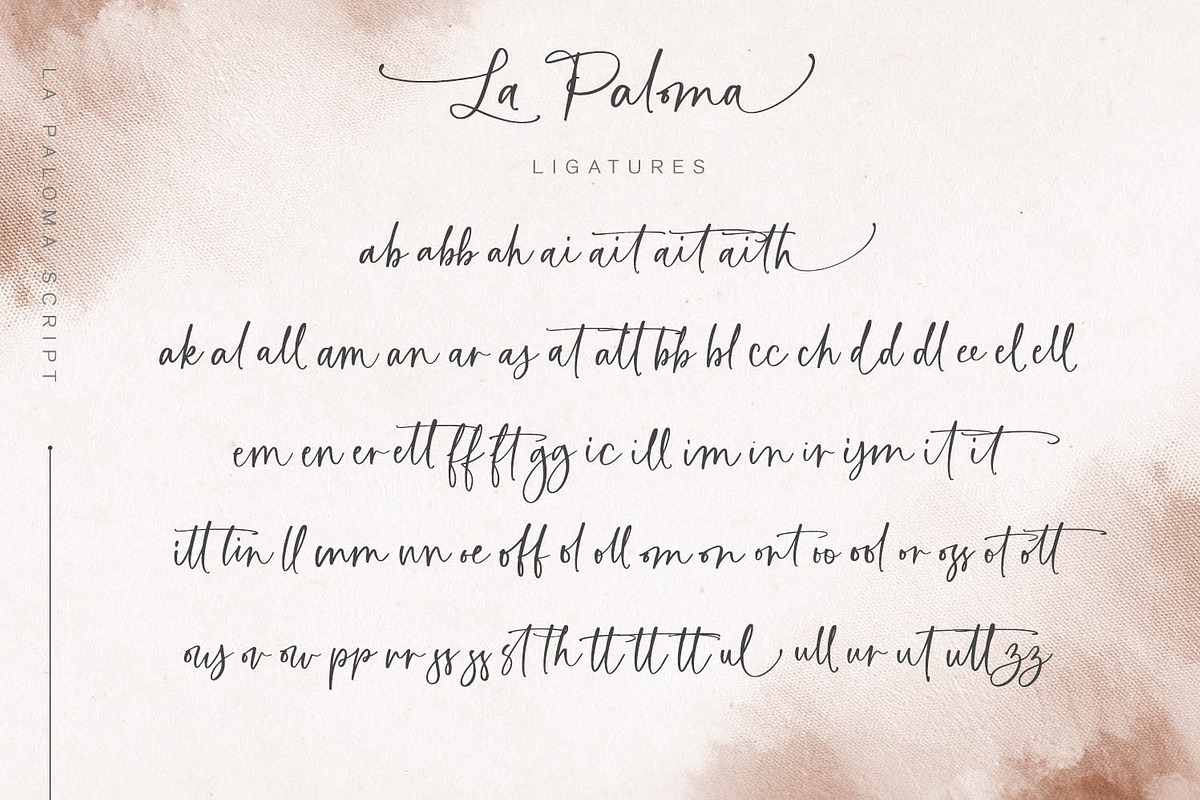 La Paloma
LIGATURES
LA PALOMA SCRIPT
ab abb ah ai ait ait aith
ak al all am an ar as at att bb bl cc ch dd dl ee el ell
em en er ett ff ft gg ic ill im in ir ism it it
itt tin ll mm nn oe off ol oll om on ont oo ool or oss ot ott
ov ow pp rr ss ss st th tt tt tt ul ull ur ut utt zz